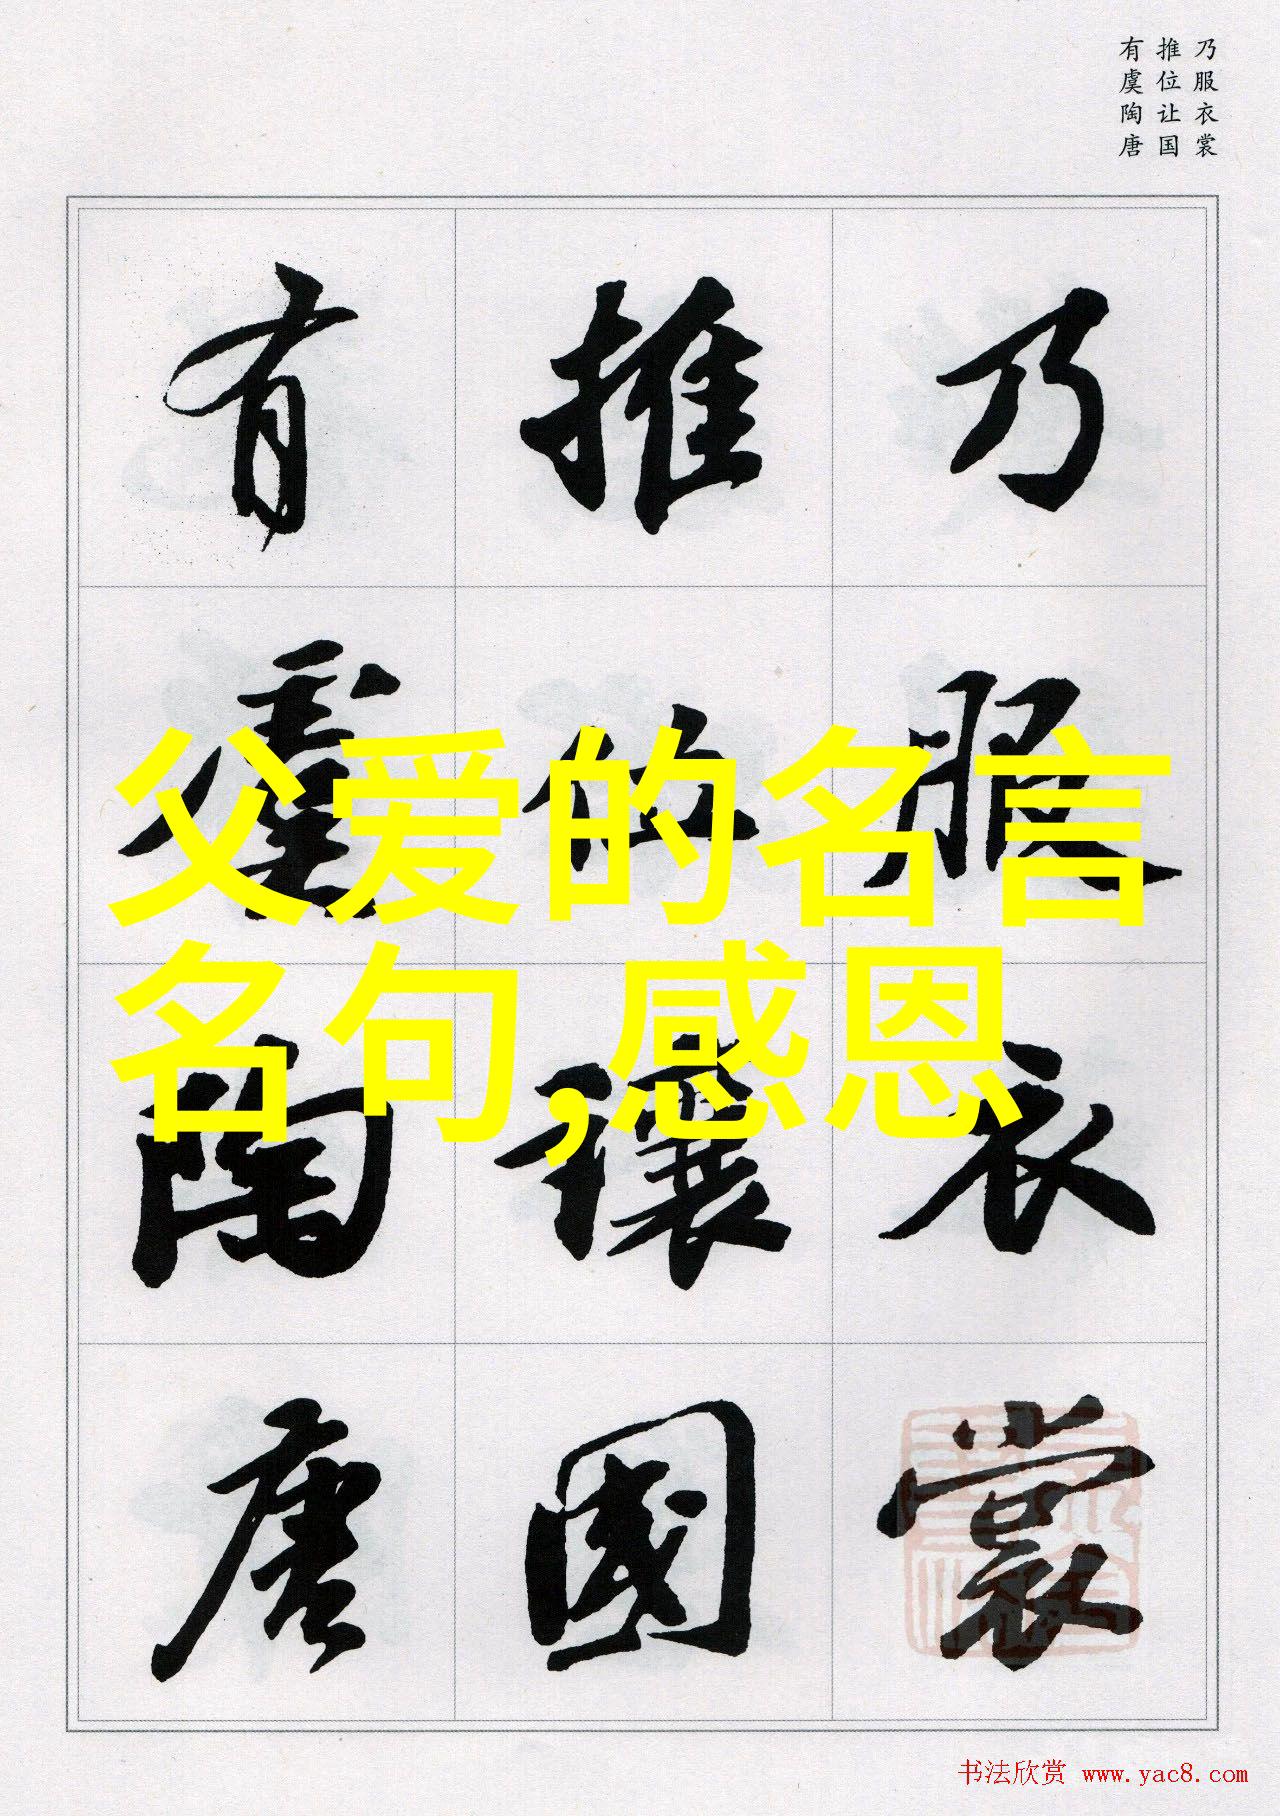 乃服衣裳
推位让国
有虞陶唐
乃服衣裳
推位讓國
有虞陶唐
父爱的名言
名句,感恩
书法欣赏 www.yac8.com